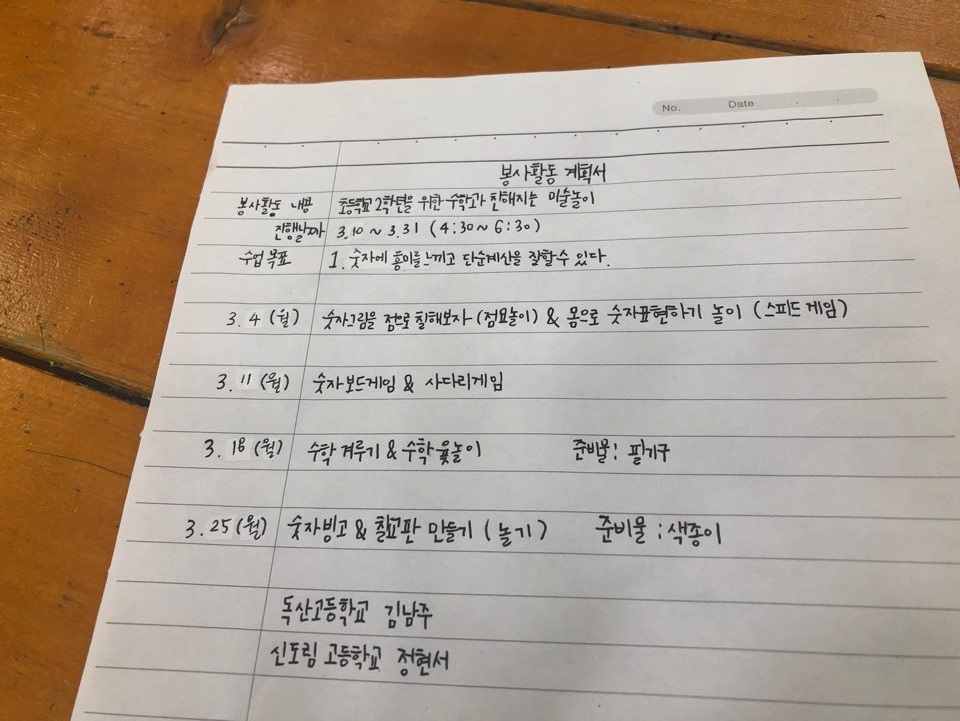 No. Date
봉사활동 계획서
봉사활동 내용 초등학교 2학년을 위한 수학과 친해지는 미술놀이
진행날짜 3.10 ~ 3.31 (4:30 ~ 6:30)
수업 목표 1. 숫자에 흥미를 느끼고 단순계산을 잘할 수 있다.
3. 4 (월) 숫자그림을 점으로 칠해보자 (점묘놀이) & 몸으로 숫자표현하기 놀이 (스피드 게임)
3. 11 (월) 숫자보드게임 & 사다리게임
3. 18 (월) 수학 겨루기 & 수학 윷놀이 준비물: 필기구
3. 25 (월) 숫자빙고 & 칠교판 만들기 (놀기) 준비물 : 색종이
독산고등학교 김남주
신도림 고등학교 정현서